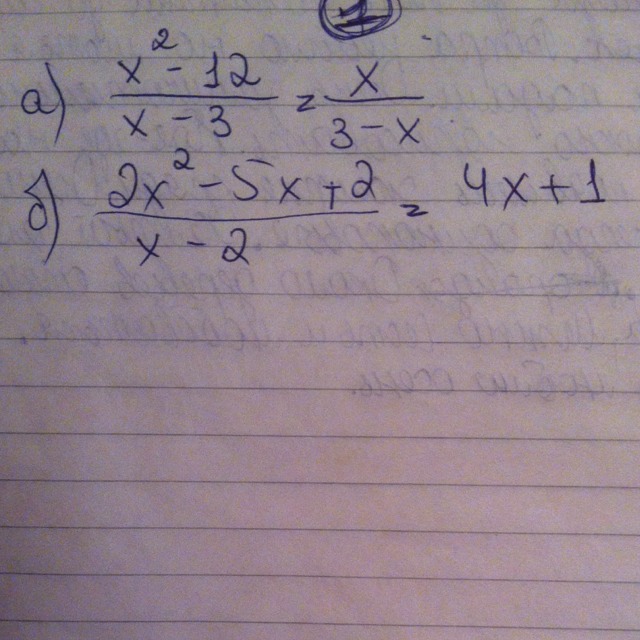 1
а) x² - 12 / x - 3 = x / 3 - x
б) 2x² - 5x + 2 / x - 2 = 4x + 1